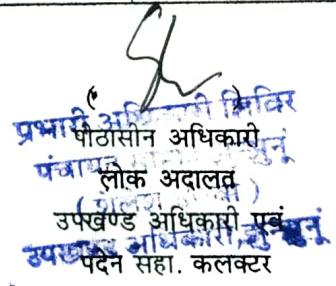 ( )
प्रभारी अधिकारी शिविर
पीठासीन अधिकारी
पंचायत झुनूं
लोक अदालत
( )
उपखण्ड अधिकारी एवं
उपखण्ड अधिकारी, झुनूं
पदेन सहा. कलक्टर